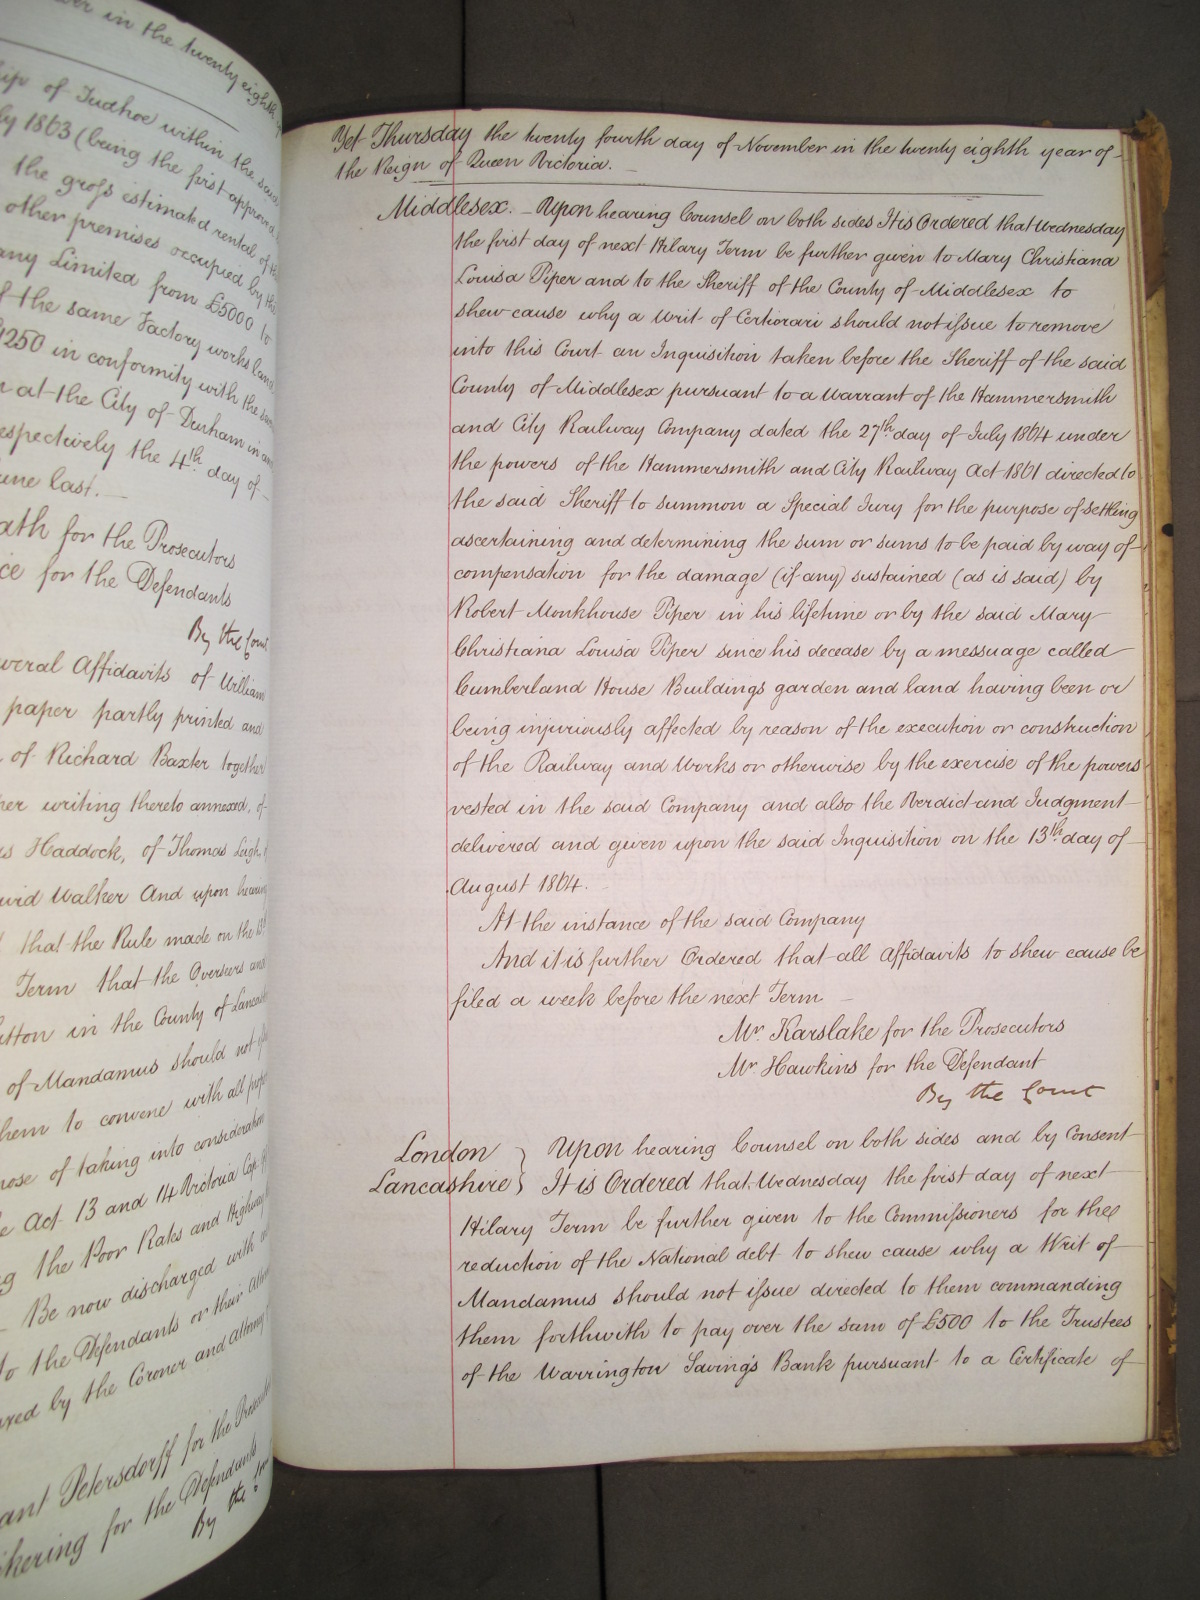 in the twenty eighth
of Tudhoe within the said
1863 (being the first approved
the gross estimated rental of the
other premises occupied by the
Limited from £5000 to
the same Factory works land
1250 in conformity with the
at the City of Durham in
respectively the 4th day of
June last.
for the Prosecutors
for the Defendants
By the Court
several Affidavits of William
paper partly printed and
of Richard Baxter together
writing thereto annexed, of
Haddock, of Thomas Leigh,
David Walker And upon hearing
that the Rule made on the 18th
Term that the Overseers and
in the County of Lancaster
of Mandamus should not
them to convene with all proper
of taking into consideration
Act 13 and 14 Victoria Cap.
the Poor Rates and Highway
Be now discharged with
to the Defendants or their
by the Coroner and Attorney
Petersdorff for the Prosecutors
for the Defendants
By the Court
Yet Thursday the twenty fourth day of November in the twenty eighth year of
the Reign of Queen Victoria.
Middlesex. Upon hearing Counsel on both sides It is Ordered that Wednesday
the first day of next Hilary Term be further given to Mary Christiana
Louisa Piper and to the Sheriff of the County of Middlesex to
shew cause why a Writ of Certiorari should not issue to remove
into this Court an Inquisition taken before the Sheriff of the said
County of Middlesex pursuant to a Warrant of the Hammersmith
and City Railway Company dated the 27th day of July 1864 under
the powers of the Hammersmith and City Railway Act 1861 directed to
the said Sheriff to summon a Special Jury for the purpose of settling
ascertaining and determining the sum or sums to be paid by way of
compensation for the damage (if any) sustained (as is said) by
Robert Monkhouse Piper in his lifetime or by the said Mary
Christiana Louisa Piper since his decease by a messuage called
Cumberland House Buildings garden and land having been or
being injuriously affected by reason of the execution or construction
of the Railway and Works or otherwise by the exercise of the powers
vested in the said Company and also the Verdict and Judgment
delivered and given upon the said Inquisition on the 13th day of
August 1864.
At the instance of the said Company
And it is further Ordered that all Affidavits to shew cause be
filed a week before the next Term
Mr. Karslake for the Prosecutors
Mr. Hawkins for the Defendant
By the Court
London } Upon hearing Counsel on both sides and by Consent
Lancashire } It is Ordered that Wednesday the first day of next
Hilary Term be further given to the Commissioners for the
reduction of the National debt to shew cause why a Writ of
Mandamus should not issue directed to them commanding
them forthwith to pay over the sum of £500 to the Trustees
of the Warrington Saving's Bank pursuant to a Certificate of